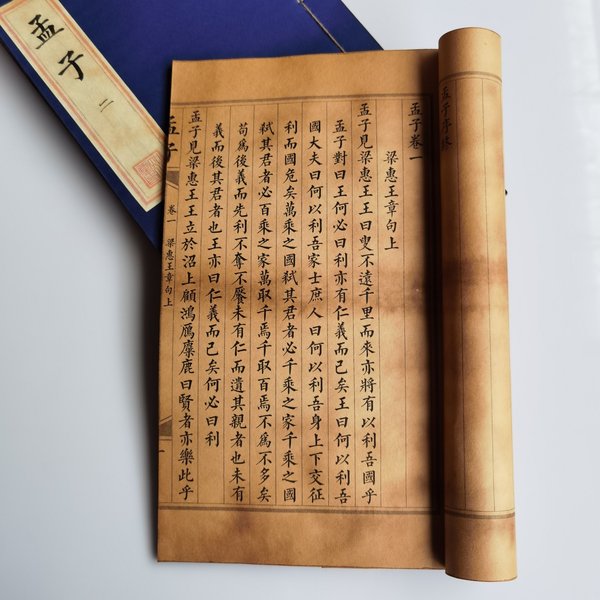 孟子序終
孟子卷一
梁惠王章句上
孟子見梁惠王王曰叟不遠千里而來亦將有以利吾國乎
孟子對曰王何必曰利亦有仁義而已矣王曰何以利吾
國大夫曰何以利吾家士庶人曰何以利吾身上下交征
利而國危矣萬乘之國弒其君者必千乘之家千乘之國
弒其君者必百乘之家萬取千焉千取百焉不為不多矣
苟為後義而先利不奪不饜未有仁而遺其親者也未有
義而後其君者也王亦曰仁義而已矣何必曰利
孟子見梁惠王王立於沼上顧鴻鴈麋鹿曰賢者亦樂此乎
孟子 卷一 梁惠王章句上 一
孟子 二